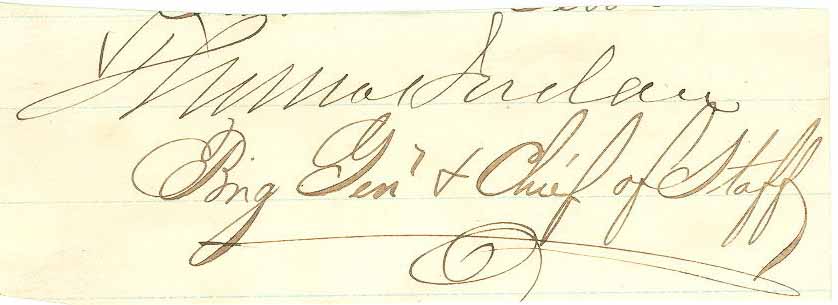 Thomas Jordan
Brig Gen'l & Chief of Staff